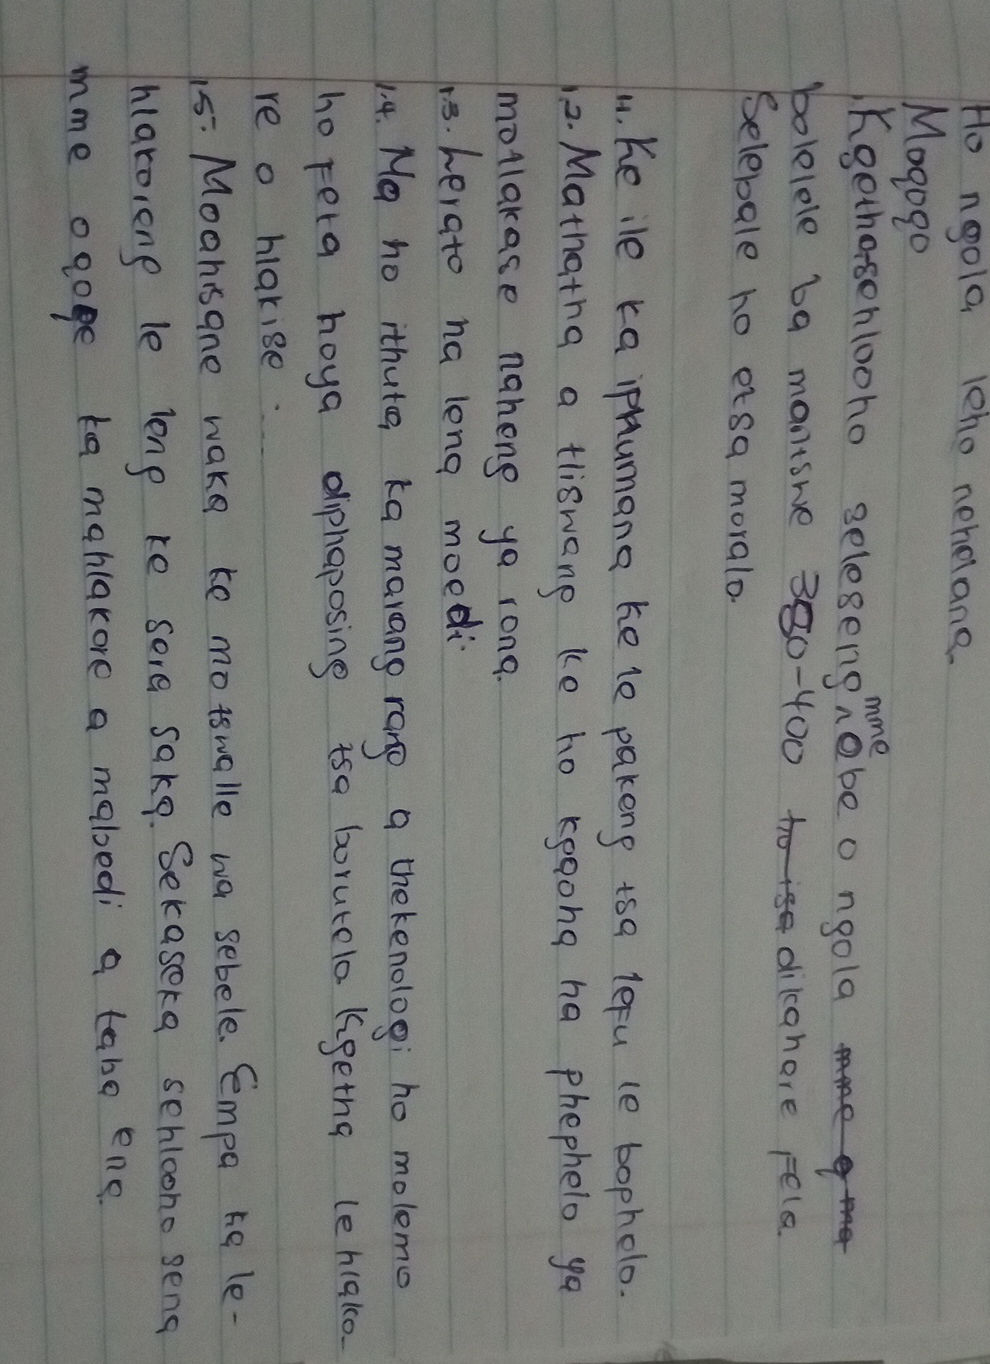 Ho ngola leho nehelana.
Moqoqo
. Kgethasehlooho selesengʌmme obe o ngola
bolelele ba mantswe 380-400 dikahare Fela.
Selebale ho etsa moralo.
11. Ke ile ka iphumana ke le pakeng tsa lefu le bophelo.
12. Mathatha a tliswang ke ho kgaoha ha phephelo ya
motlakase naheng ya rona.
1.3. Lerato ha lena moedi.
1.4. Na ho ithuta ka marang rang a thekenologi ho molemo
ho Feta hoya diphaposing tsa borutelo. Kgetha lehlako-
re o hlakise ....
1.5. Moahisane waka ke motswalle wa sebele. Empa ka le-
hlakoreng le leng ke sera saka. Sekaseka sehlooho sena
mme oqoqe ka mahlakore a mabedi a taba ena.